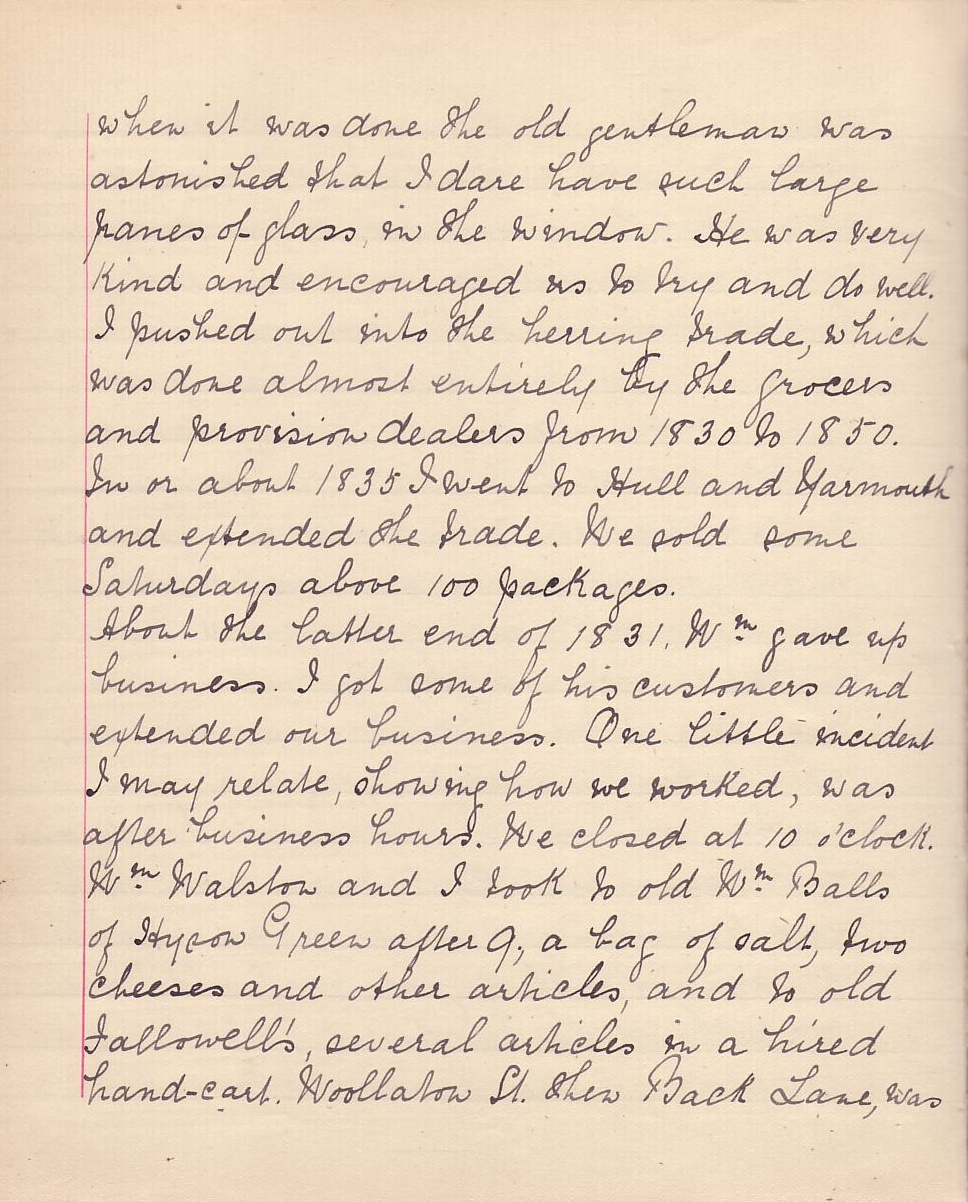 when it was done the old gentleman was
astonished that I dare have such large
panes of glass, in the window. He was very
kind and encouraged us to try and do well.
I pushed out into the herring trade, which
was done almost entirely by the grocers
and provision dealers from 1830 to 1850.
In or about 1835 I went to Hull and Yarmouth
and extended the trade. We sold some
Saturdays above 100 packages.
About the latter end of 1831. Wm gave up
business. I got some of his customers and
extended our business. One little incident
I may relate, showing how we worked, was
after business hours. We closed at 10 o'clock.
Wm Walston and I took to old Wm Balls
of Hyson Green after 9, a bag of salt, two
cheeses and other articles, and to old
Fallowell's, several articles in a hired
hand-cart. Woollaton St. then Back Lane, was